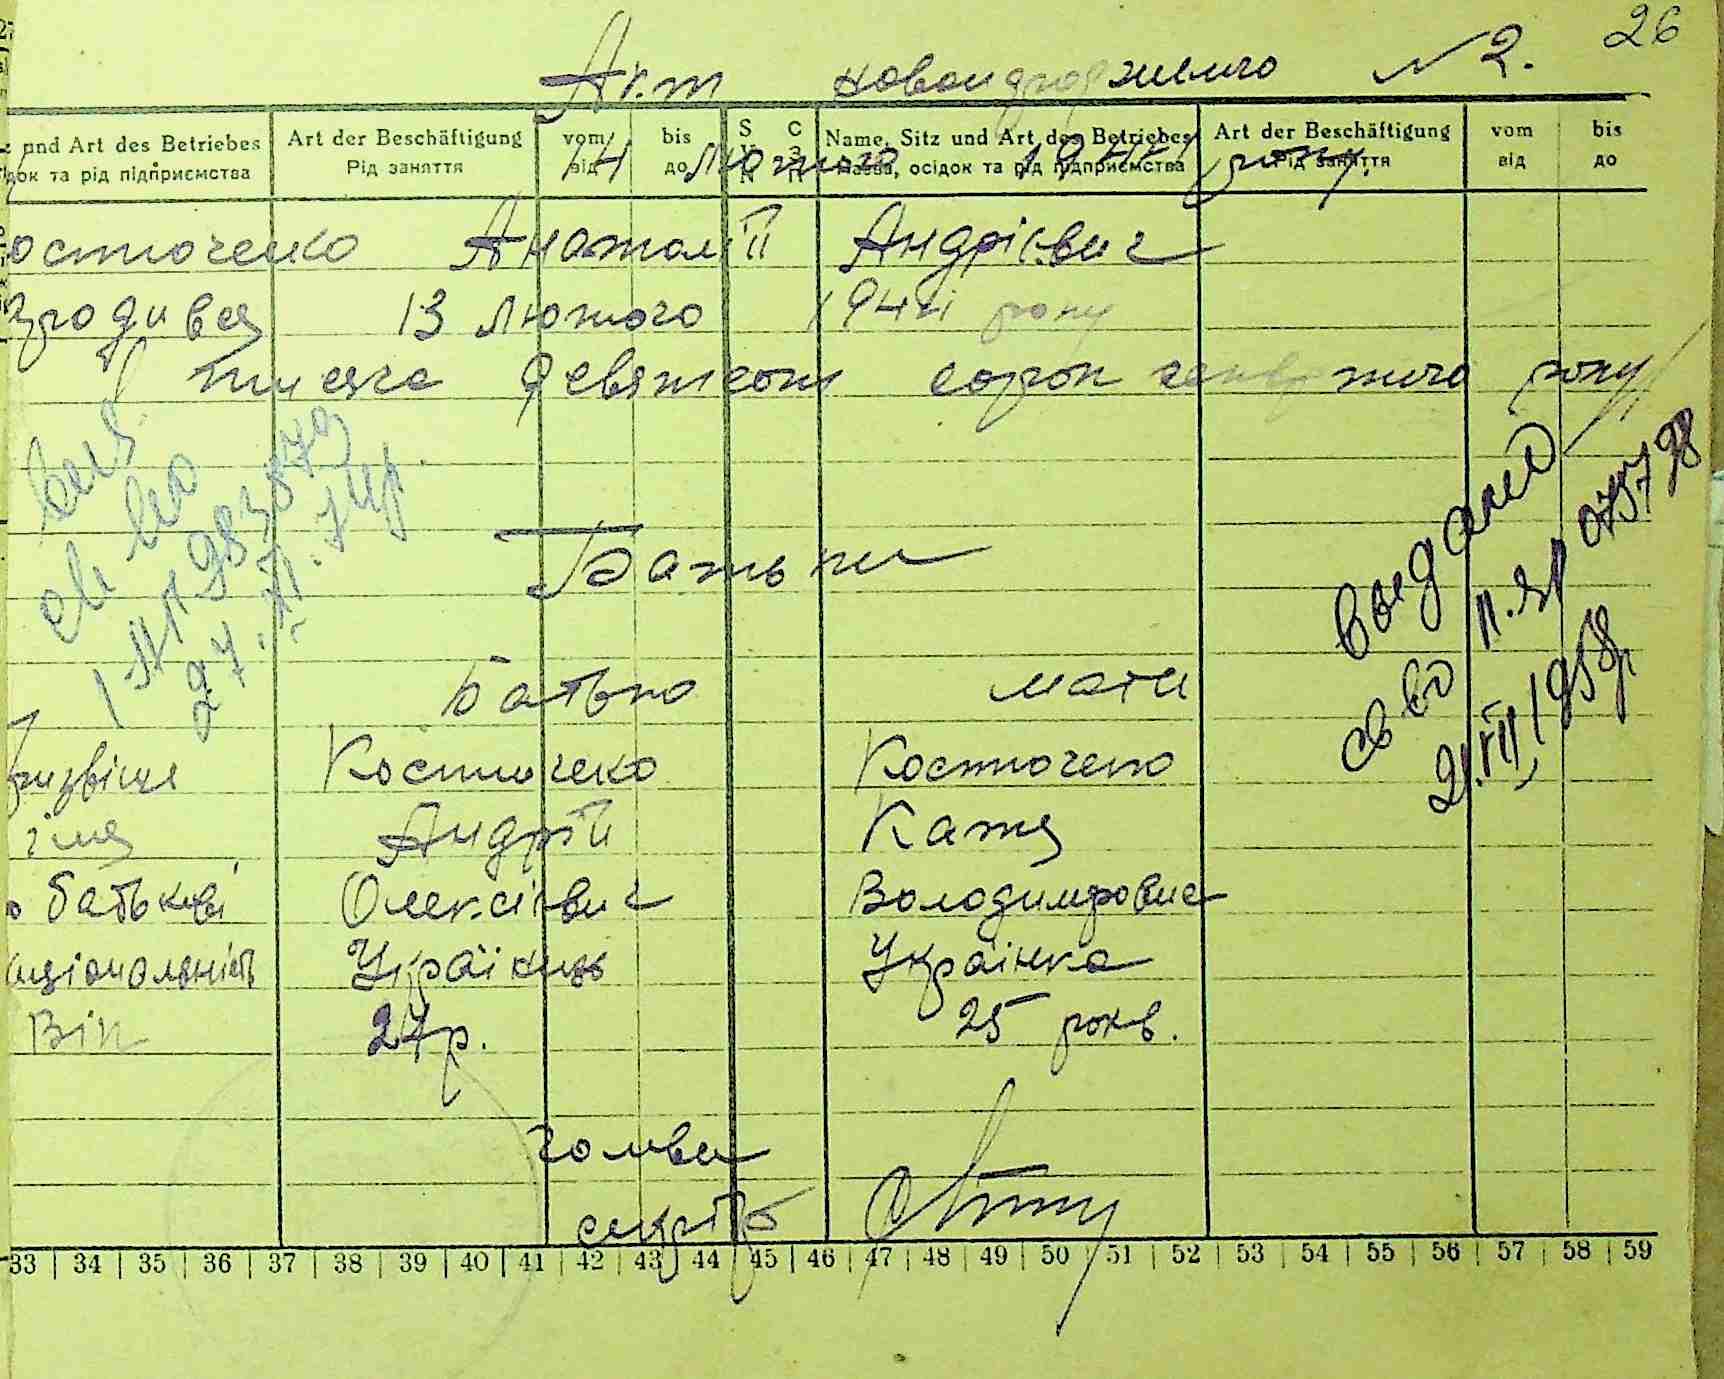 26
Акт новонародженого № 2.
und Art des Betriebes Art der Beschäftigung vom bis S C Name, Sitz und Art des Betriebes Art der Beschäftigung vom bis
док та рід підприємства Рід заняття від до Назва, осідок та рід підприємства Рід заняття від до
14 Лютого 1944 року.
остюченко Анатолій Андрієвич
зродився 13 Лютого 1944 року
тисяча девятсот сорок четвертого року
Батьки
Батько мати
призвіще Костюченко Костюченко
імя Андрій Катя
по батькові Олексієвич Володимировна
національність Українець Українка
Вік 27р. 25 років.
голова
секрет
983879
выдано
св во II. ЯР 075798
21.VII.1958р
33 | 34 | 35 | 36 | 37 | 38 | 39 | 40 | 41 | 42 | 43 | 44 | 45 | 46 | 47 | 48 | 49 | 50 | 51 | 52 | 53 | 54 | 55 | 56 | 57 | 58 | 59